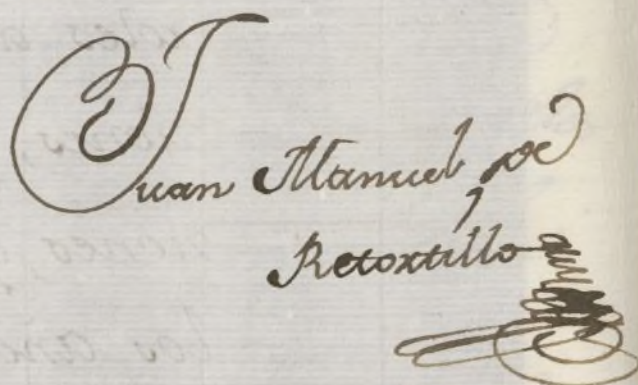 Juan Manuel de
Retortillo